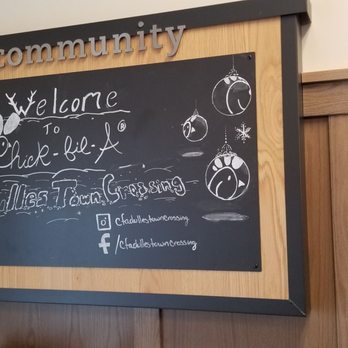 community
Welcome
To
Chick-fil-A®
Dulles Town Crossing
cfadullestowncrossing
/cfadullestowncrossing